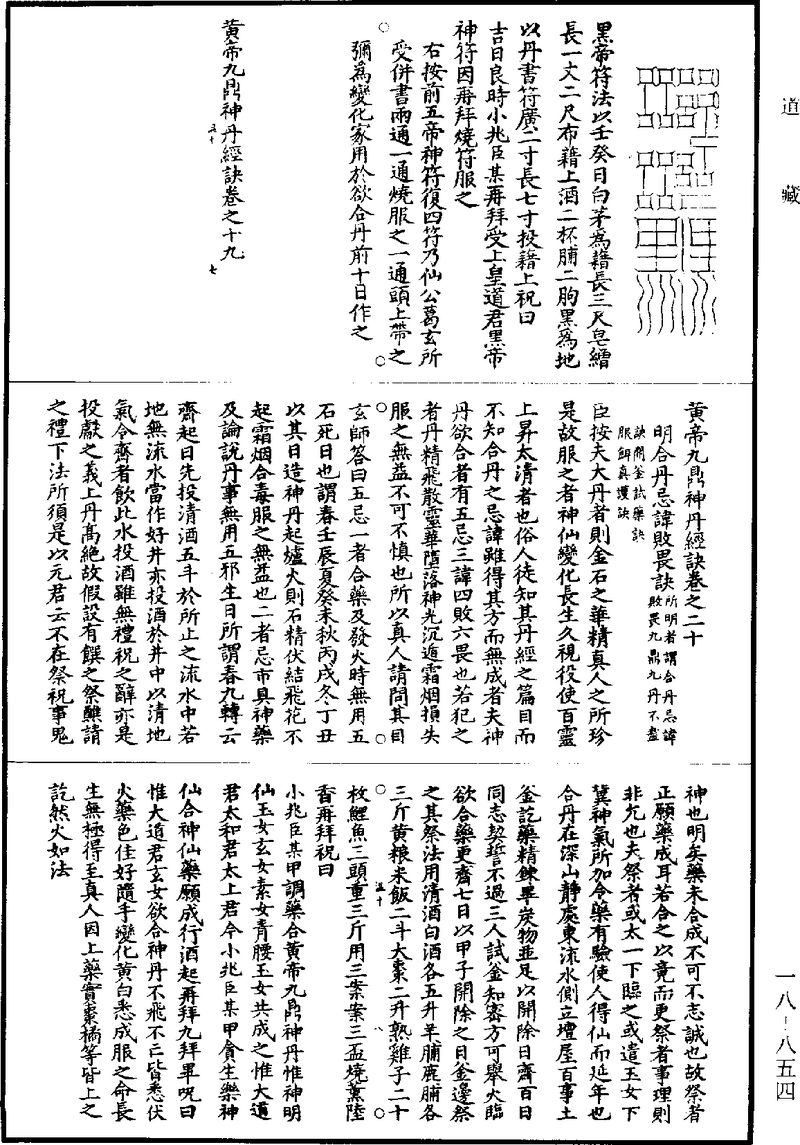 道藏
黑帝符法以壬癸日白茅為藉長三尺皂繒
長一丈二尺布藉上酒二杯脯二朐黑為地
以丹書符廣二寸長七寸投藉上祝曰
吉日良時小兆臣某再拜受上皇道君黑帝
神符因再拜燒符服之
右按前五帝神符復四符乃仙公葛玄所
受併書兩通一通燒服之一通頭上帶之
彌為變化家用於欲合丹前十日作之
黃帝九鼎神丹經訣卷之十九
五十
七
黃帝九鼎神丹經訣卷之二十
明合丹忌諱敗畏訣
所明者謂合丹忌諱
敗畏九鼎九丹不盡
訣開釜試藥訣
服餌真護訣
臣按夫大丹者則金石之華精真人之所珍
是故服之者神仙變化長生久視役使百靈
上昇太清者也俗人徒知其丹經之篇目而
不知合丹之忌諱雖得其方而無成者夫神
丹欲合者有五忌三諱四敗六畏也若犯之
者丹精飛散靈華墮落神光沉遁霜烟損失
服之無益不可不慎也所以真人請問其目
玄師答曰五忌一者合藥及發火時無用五
石死日也謂春壬辰夏癸未秋丙戌冬丁丑
以其日造神丹起爐火則石精伏結飛花不
起霜烟合毒服之無益也二者忌市具神藥
及論說丹事無用五邪生日所謂春九轉云
齋起日先投清酒五斗於所止之流水中若
地無流水當作好井亦投酒於井中以清地
氣令齋者飲此水投酒雖無禮祝之辭亦是
投獻之義上丹高絕故假設有饌之祭醮請
之禮下法所須是以元君云不在祭祝事鬼
神也明矣藥未合成不可不志誠也故祭者
正願藥成耳若合之以竟而更祭者事理則
非允也夫祭者或太一下臨之或遣玉女下
冀神氣所加令藥有驗使人得仙而延年也
合丹在深山靜處東流水側立壇屋百事土
釜訖藥精鍊畢炭物並足以開除日齋百日
同志契誓不過三人試釜知密方可舉火臨
欲合藥更齋七日以甲子開除之日釜邊祭
之其祭法用清酒白酒各五升羊脯鹿脯各
三斤黃粮米飯二斗大棗二升熟雞子二十
枚鯉魚三頭重三斤用三案案三盃燒薰陸
香再拜祝曰
五十
八
小兆臣某甲調藥合黃帝九鼎神丹惟神明
仙玉女玄女素女青腰玉女共成之惟大道
君太和君太上君今小兆臣某甲貪生樂神
仙合神仙藥願成行酒起再拜九拜畢呪曰
惟大道君玄女欲合神丹不飛不亡皆悉伏
火藥色佳好隨手變化黃白悉成服之命長
生無極得至真人因上藥實棗橘等皆上之
訖然火如法
一八-八五四